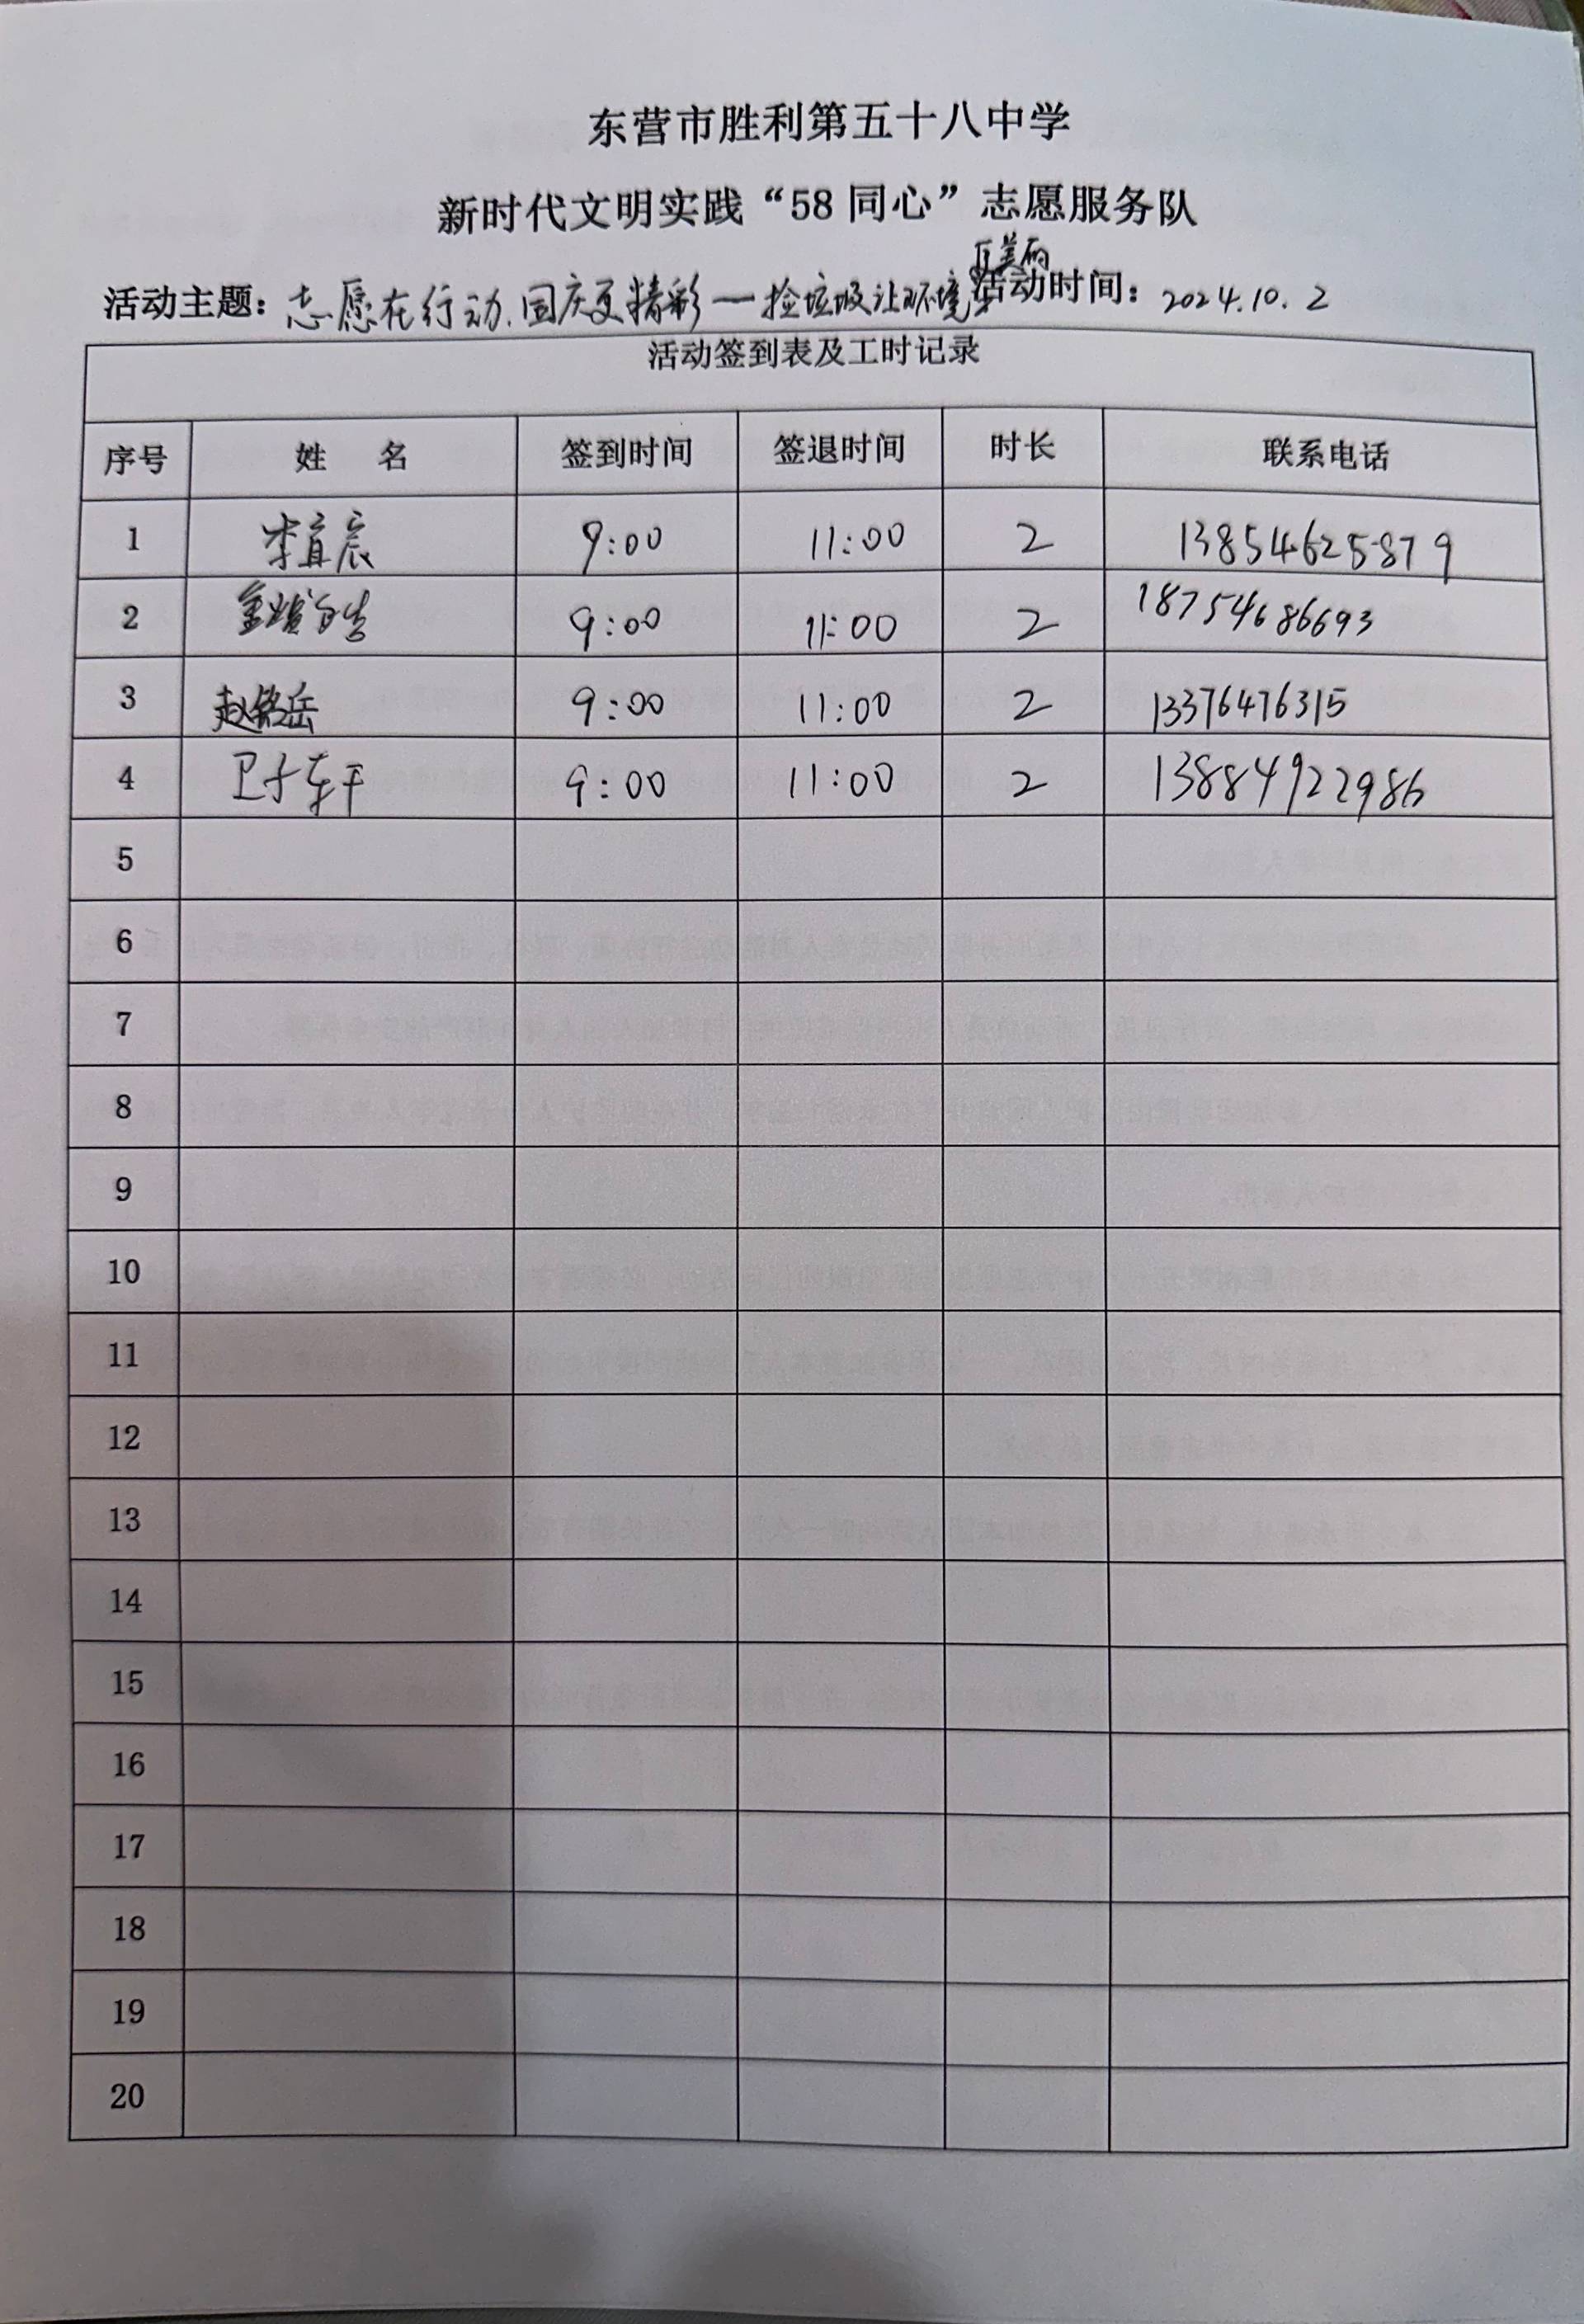 东营市胜利第五十八中学
新时代文明实践“58 同心”志愿服务队
活动主题：志愿在行动,国庆更精彩一捡垃圾让环境更美丽 活动时间：2024.10.2
活动签到表及工时记录
序号 姓 名 签到时间 签退时间 时长 联系电话
1 李宜宸 9:00 11:00 2 13854625879
2 9:00 11:00 2 18754686693
3 赵铭岳 9:00 11:00 2 13376476315
4 卫子轩 9:00 11:00 2 13884922986
5
6
7
8
9
10
11
12
13
14
15
16
17
18
19
20